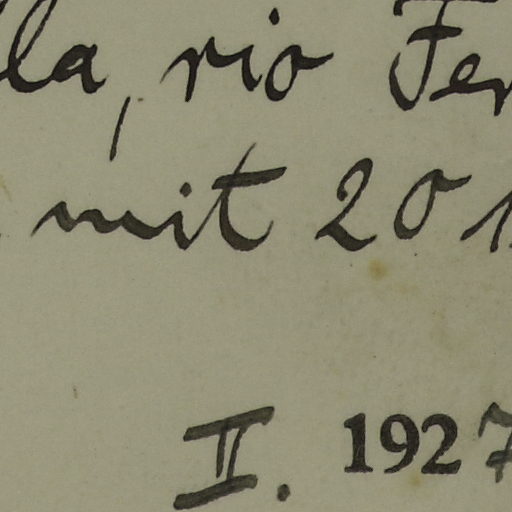 la, rio Fer
mit 20
II. 1927